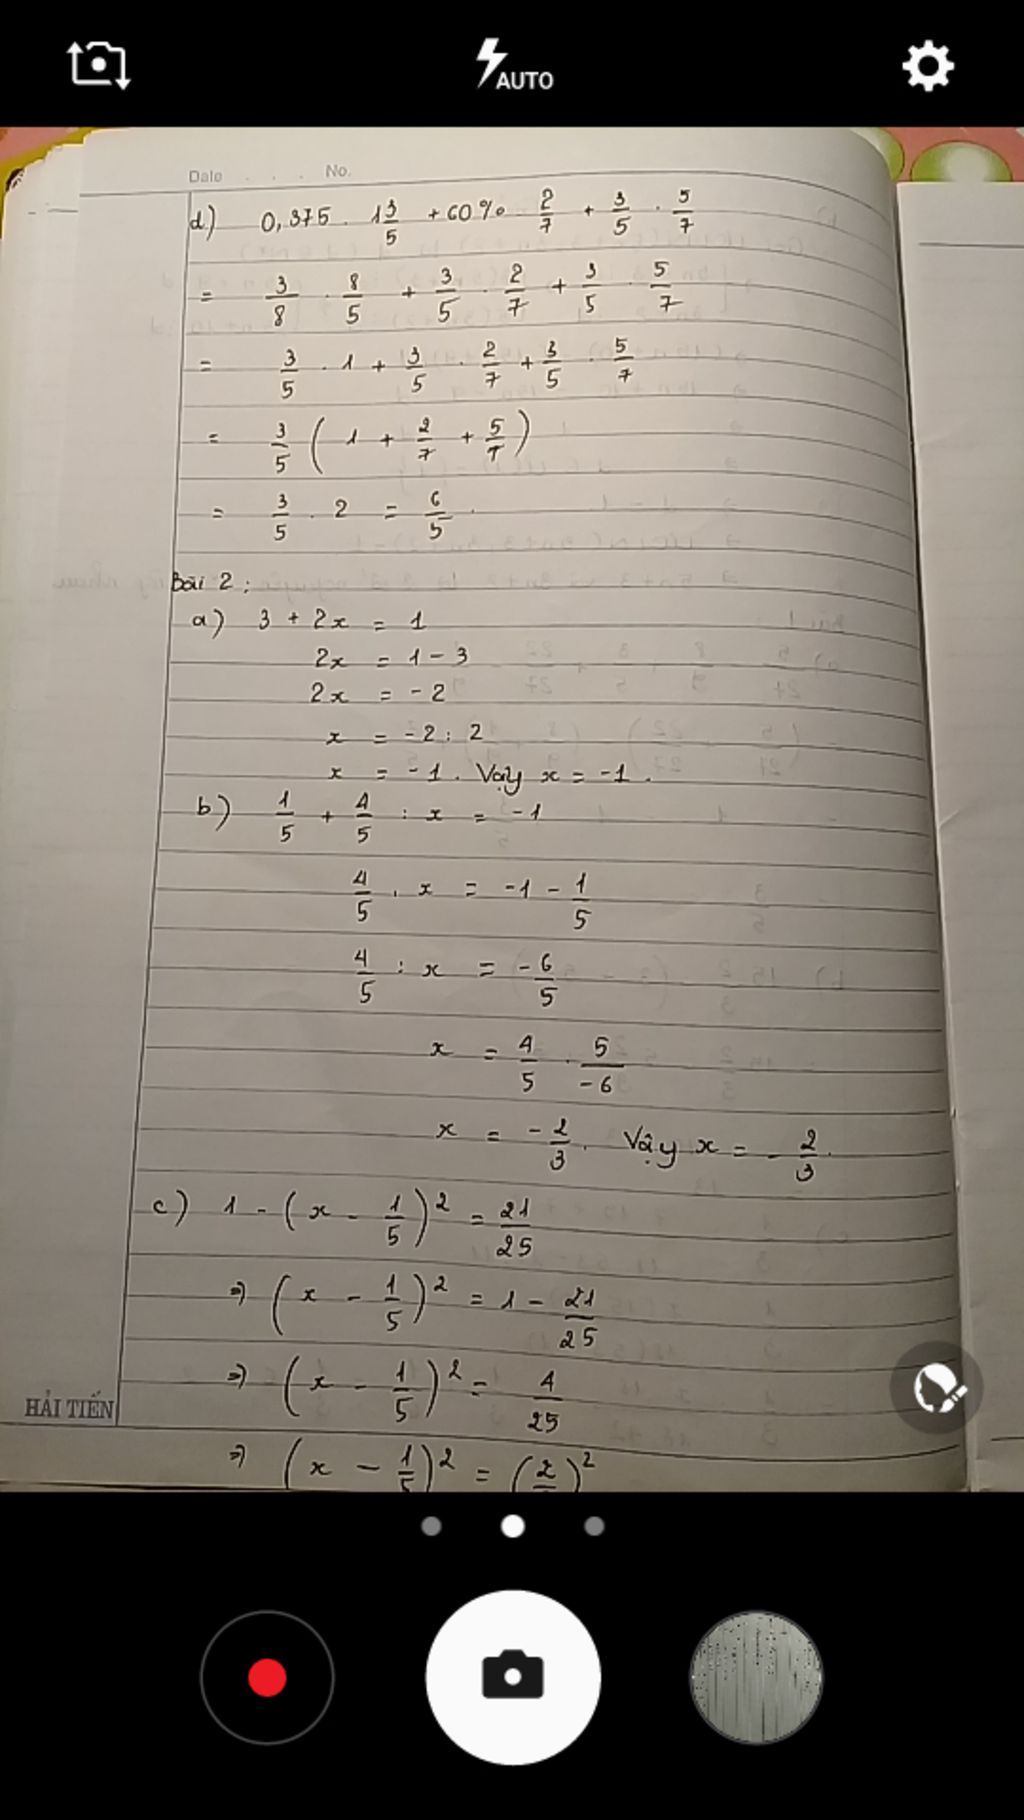 AUTO
Date . . . No.
d) 0,375 . 1 3/5 + 60% . 2/7 + 3/5 . 5/7
= 3/8 . 8/5 + 3/5 . 2/7 + 3/5 . 5/7
= 3/5 . 1 + 3/5 . 2/7 + 3/5 . 5/7
= 3/5 ( 1 + 2/7 + 5/7 )
= 3/5 . 2 = 6/5 .
Bài 2 :
a) 3 + 2x = 1
2x = 1 - 3
2x = -2
x = -2 : 2
x = -1 . Vậy x = -1 .
b) 1/5 + 4/5 : x = -1
4/5 . x = -1 - 1/5
4/5 : x = -6/5
x = 4/5 . 5/-6
x = -2/3 . Vậy x = -2/3 .
c) 1 - ( x - 1/5 )² = 21/25
⇒ ( x - 1/5 )² = 1 - 21/25
⇒ ( x - 1/5 )² = 4/25
HẢI TIẾN